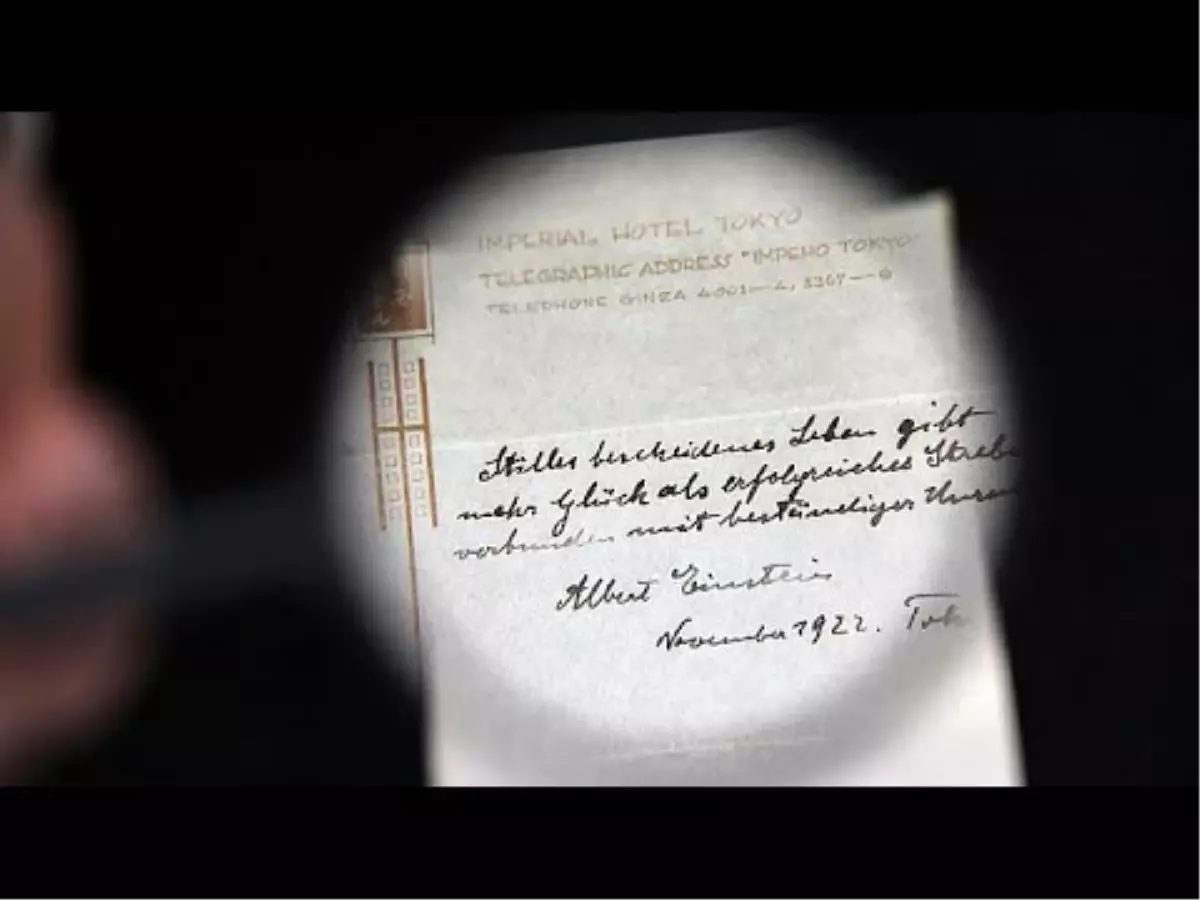 IMPERIAL HOTEL TOKYO
TELEGRAPHIC ADDRESS "IMPEHO TOKYO"
TELEPHONE GINZA 4001—4, 3367—8
Stilles bescheidenes Leben gibt
mehr Glück als erfolgreiches Streben
verbunden mit beständiger
Albert Einstein
November 1922.